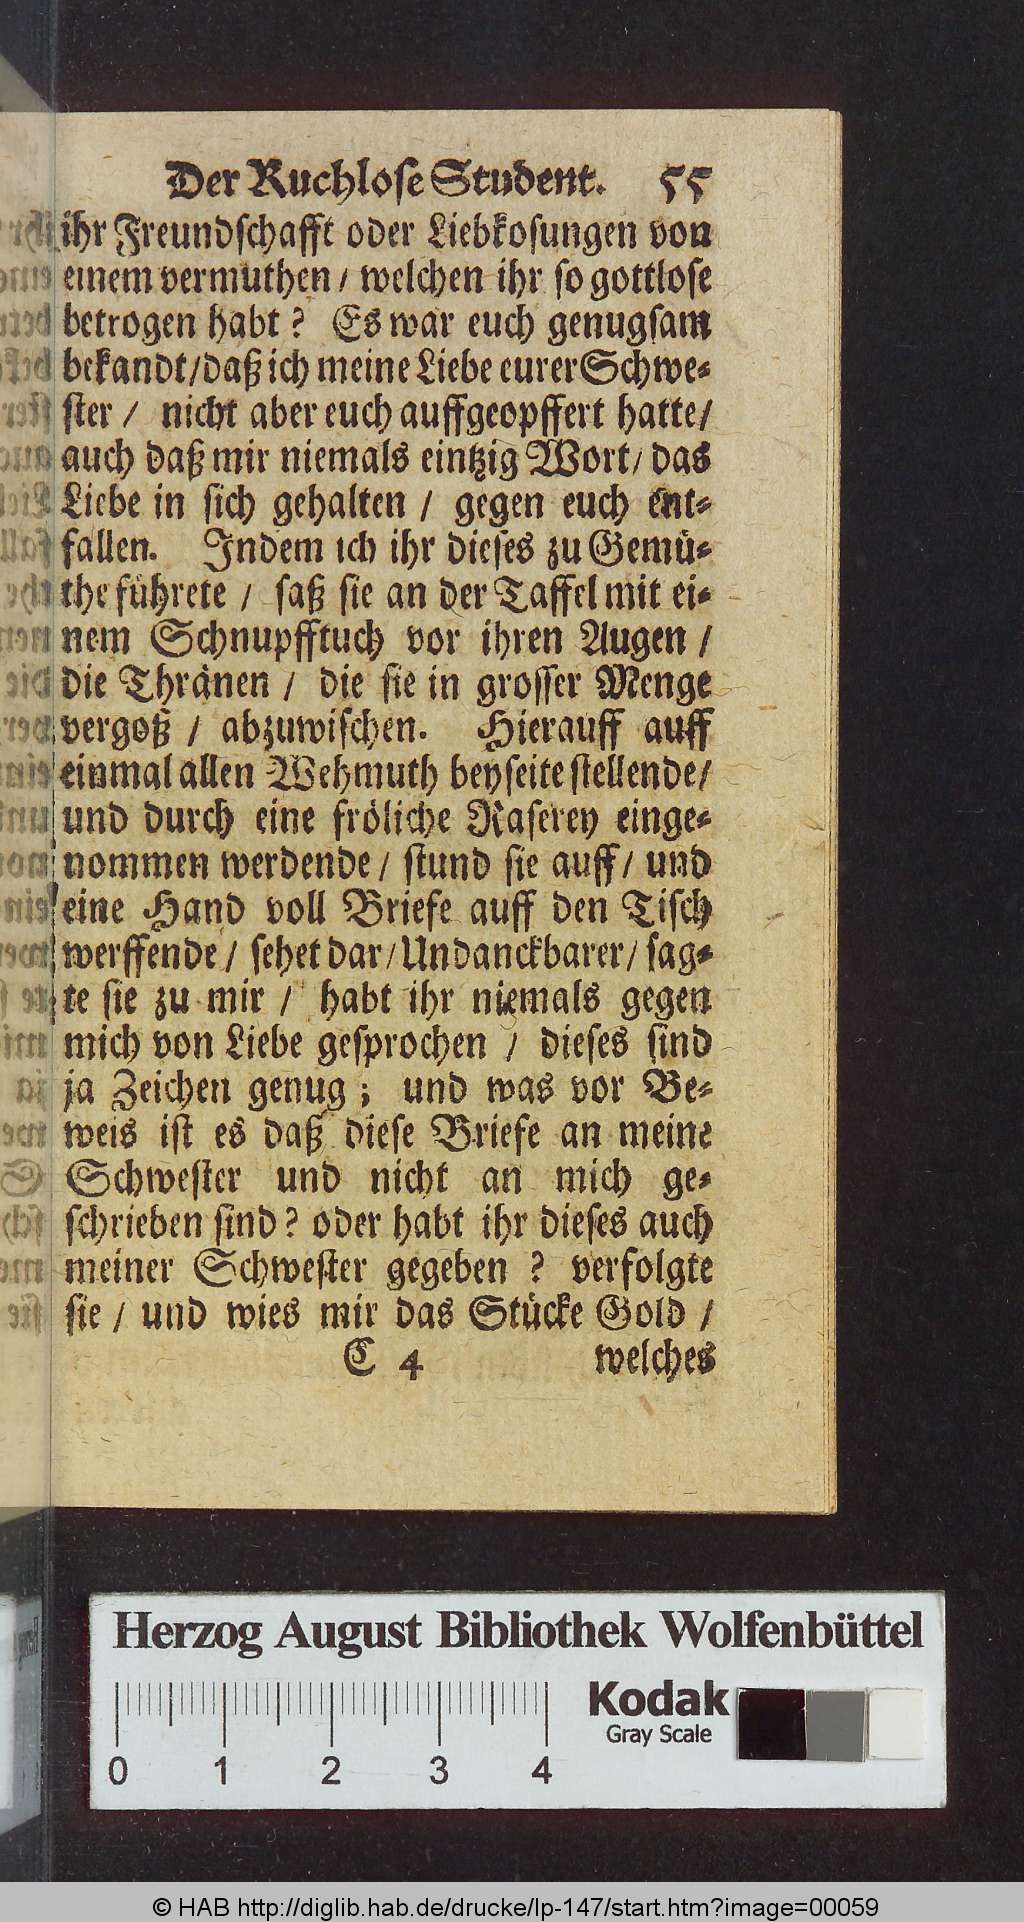 Der Ruchlose Student. 55
ihr Freundschafft oder Liebkosungen von
einem vermuthen / welchen ihr so gottlose
betrogen habt ? Es war euch genugsam
bekandt / daß ich meine Liebe eurer Schwe-
ster / nicht aber euch auffgeopffert hatte /
auch daß mir niemals eintzig Wort / das
Liebe in sich gehalten / gegen euch ent-
fallen. Indem ich ihr dieses zu Gemü-
the führete / saß sie an der Taffel mit ei-
nem Schnupfftuch vor ihren Augen /
die Thränen / die sie in grosser Menge
vergoß / abzuwischen. Hierauff auff
einmal allen Wehmuth beyseite stellende /
und durch eine fröliche Raserey einge-
nommen werdende / stund sie auff / und
eine Hand voll Briefe auff den Tisch
werffende / sehet dar / Undanckbarer / sag-
te sie zu mir / habt ihr niemals gegen
mich von Liebe gesprochen / dieses sind
ja Zeichen genug ; und was vor Be-
weis ist es daß diese Briefe an meine
Schwester und nicht an mich ge-
schrieben sind ? oder habt ihr dieses auch
meiner Schwester gegeben ? verfolgte
sie / und wies mir das Stücke Gold /
C 4 welches
Herzog August Bibliothek Wolfenbüttel
Kodak
Gray Scale
0 1 2 3 4
© HAB http://diglib.hab.de/drucke/lp-147/start.htm?image=00059